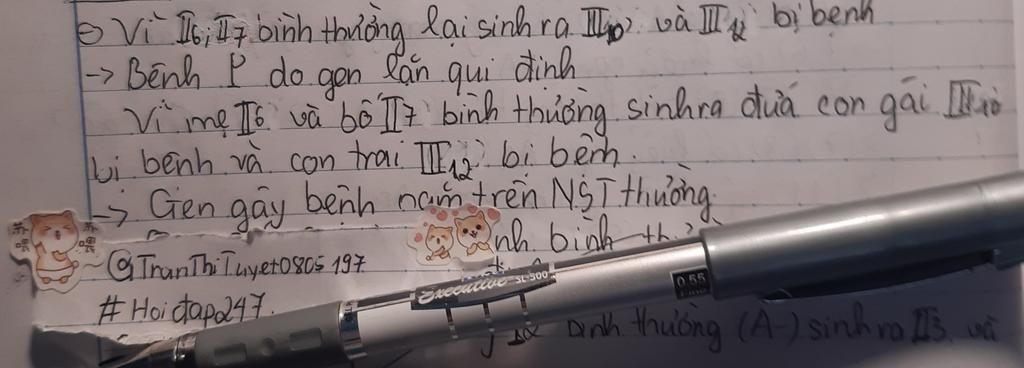 ⊖ Vì II6, II7 bình thường lại sinh ra III10 và III12 bị bệnh
-> Bệnh P do gen lặn qui định
Vì mẹ II6 và bố II7 bình thường sinh ra đứa con gái III10
bị bệnh và con trai III12 bị bệnh.
-> Gen gây bệnh nằm trên NST thường
bình
@TranThiTuyet0805197
#Hoidap247.
Executive SL-500
0.55
bình thường (A-) sinh ra II5 và